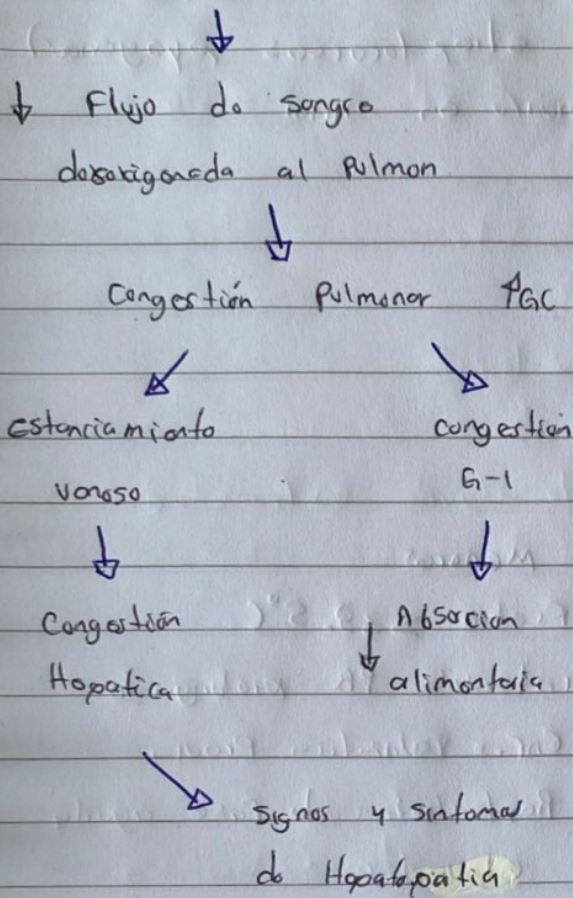 ↓ Flujo de sangre
desoxigeneda al Pulmon
Congestión Pulmonar ↑GC
estanciamiento
venoso
Congestión
Hepatica
congestion
G-I
↓ Absorcion
alimentaria
Signos y sintomas
de Hepatopatia